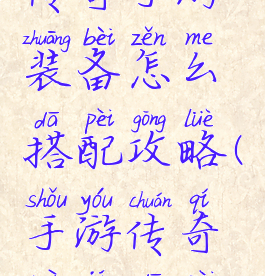 zhuāng bèi zěn me
装备怎么
dā pèi gōng lüè
搭配攻略(
shǒu yóu chuán qí
手游传奇